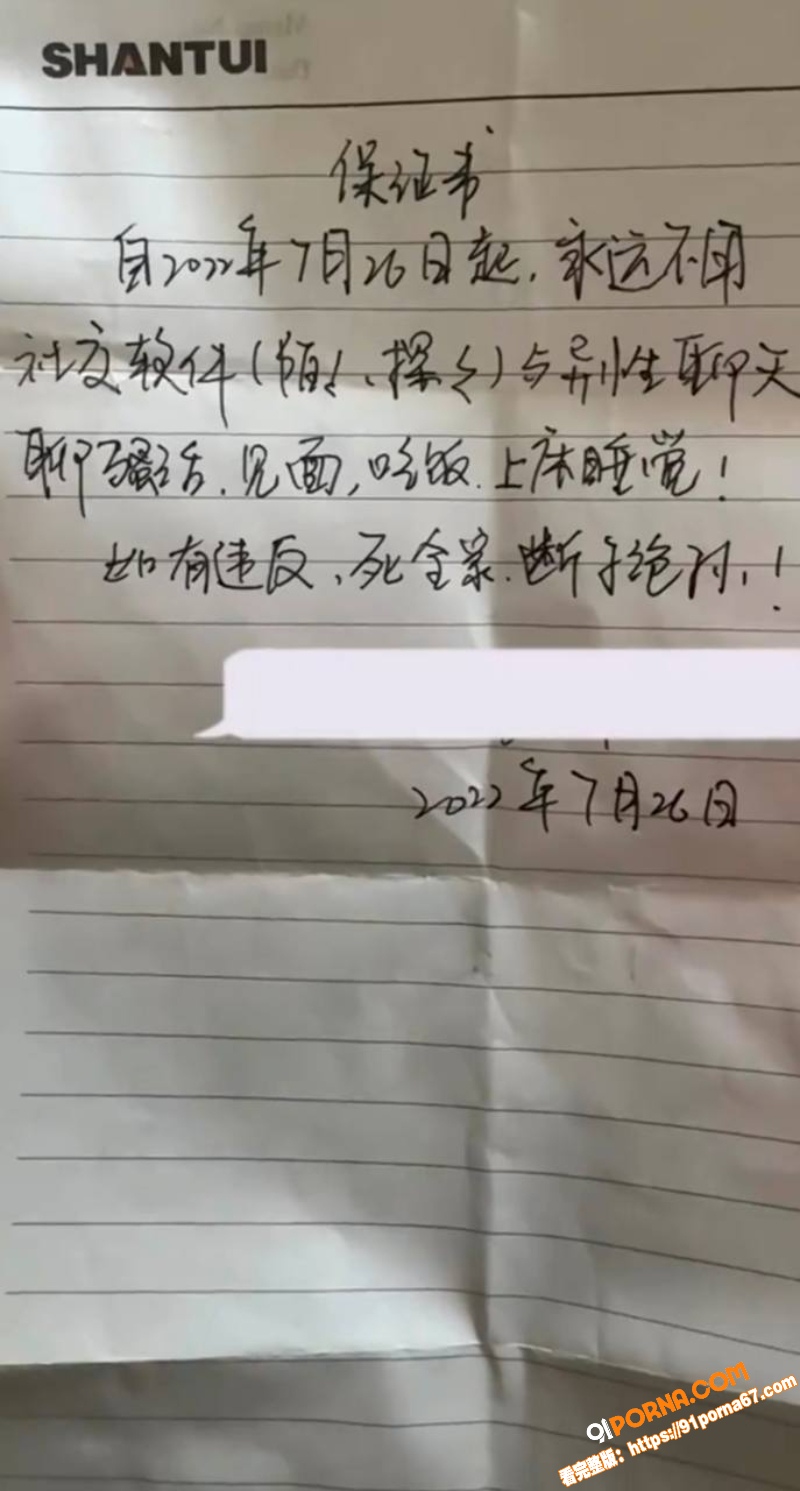 SHANTUI
保证书
自2022年7月26日起，永远不用
社交软件（陌々、探々）与异性聊天
聊骚话，见面，吃饭，上床睡觉！
如有违反、死全家，断子绝孙，！
2022年7月26日
91PORNA.COM
看完整版：https://91porna67.com